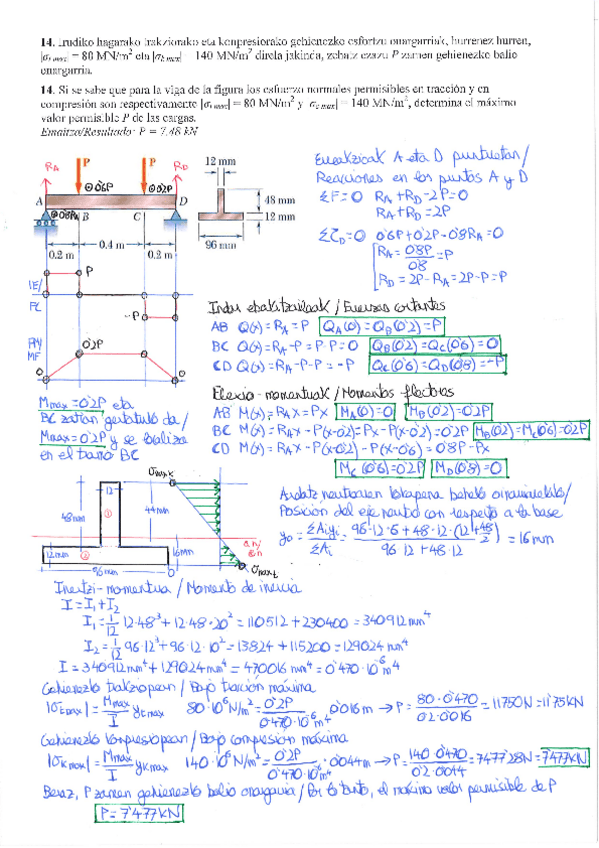 14. Irudiko hagarako trakziorako eta konpresiorako gehienezko esfortzu onargarriak, hurrenez hurren,
|σt max| = 80 MN/m² eta |σk max| = 140 MN/m² direla jakinda, zehatz ezazu P zamen gehienezko balio
onargarria.
14. Si se sabe que para la viga de la figura los esfuerzo normales permisibles en tracción y en
compresión son respectivamente |σt max| = 80 MN/m² y |σc max| = 140 MN/m², determina el máximo
valor permisible P de las cargas.
Emaitza/Resultado: P = 7.48 kN
RA P P RD
⊙0'6P ⊙0'2P
A B C D
⊙0'8P
0.2 m 0.4 m 0.2 m
12 mm
48 mm
12 mm
96 mm
Erreakzioak A eta D puntuetan/
Reacciones en los puntos A y D
ΣF=0 RA+RD-2P=0
RA+RD=2P
ΣZD=0 0'6P+0'2P-0'8RA=0
RA=0'8P/0'8=P
RD=2P-RA=2P-P=P
IE/
FC
P
-P
FM/
MF
0'2P
0 0
Indar ebakitzaileak / Fuerzas cortantes
AB Q(x)=RA=P QA(0)=QB(0'2)=P
BC Q(x)=RA-P=P-P=0 QB(0'2)=QC(0'6)=0
CD Q(x)=RA-P-P=-P QC(0'6)=QD(0'8)=-P
Flexio-momentuak / Momentos flectores
AB M(x)=RAx=Px MA(0)=0 MB(0'2)=0'2P
BC M(x)=RAx-P(x-0'2)=Px-P(x-0'2)=0'2P MB(0'2)=MC(0'6)=0'2P
CD M(x)=RAx-P(x-0'2)-P(x-0'6)=0'8P-Px
MC(0'6)=0'2P MD(0'8)=0
Mmax=0'2P eta
BC zatian gertatuko da/
Mmax=0'2P y se localiza
en el tramo BC
σmaxk
12
48mm
①
44mm
12mm
②
96mm
0
16mm
a.n/
e.n
σmaxt
Ardatz neutroaren kokapena beheko oinarriarekiko/
Posición del eje neutro con respecto a la base
y0=ΣAiyi/ΣAi=(96·12·6+48·12·(12+48/2))/(96·12+48·12)=16mm
Inertzi-momentua / Momento de inercia
I=I1+I2
I1=1/12 12·48³+12·48·20²=110512+230400=340912mm⁴
I2=1/12 96·12³+96·12·10²=13824+115200=129024mm⁴
I=340912mm⁴+129024mm⁴=470016mm⁴=0'470·10⁻⁶m⁴
Gehienezko trakziopean / Bajo tracción máxima
|σtmax|=Mmax/I ytmax 80·10⁶N/m²=0'2P/0'470·10⁻⁶m⁴ 0'016m→P=80·0'470/0'2·0'016=11750N=11'75KN
Gehienezko konpresiopean / Bajo compresión máxima
|σkmax|=Mmax/I ykmax 140·10⁶N/m²=0'2P/0'470·10⁻⁶m⁴·0'044m→P=140·0'470/0'2·0'044=7477'28N=7'477KN
Beraz, P zamen gehienezko balio onargarria / Por lo tanto, el máximo valor permisible de P
P=7'477KN